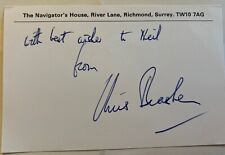 The Navigator's House, River Lane, Richmond, Surrey. TW10 7AG
with best wishes to Neil
from
Chris Brasher